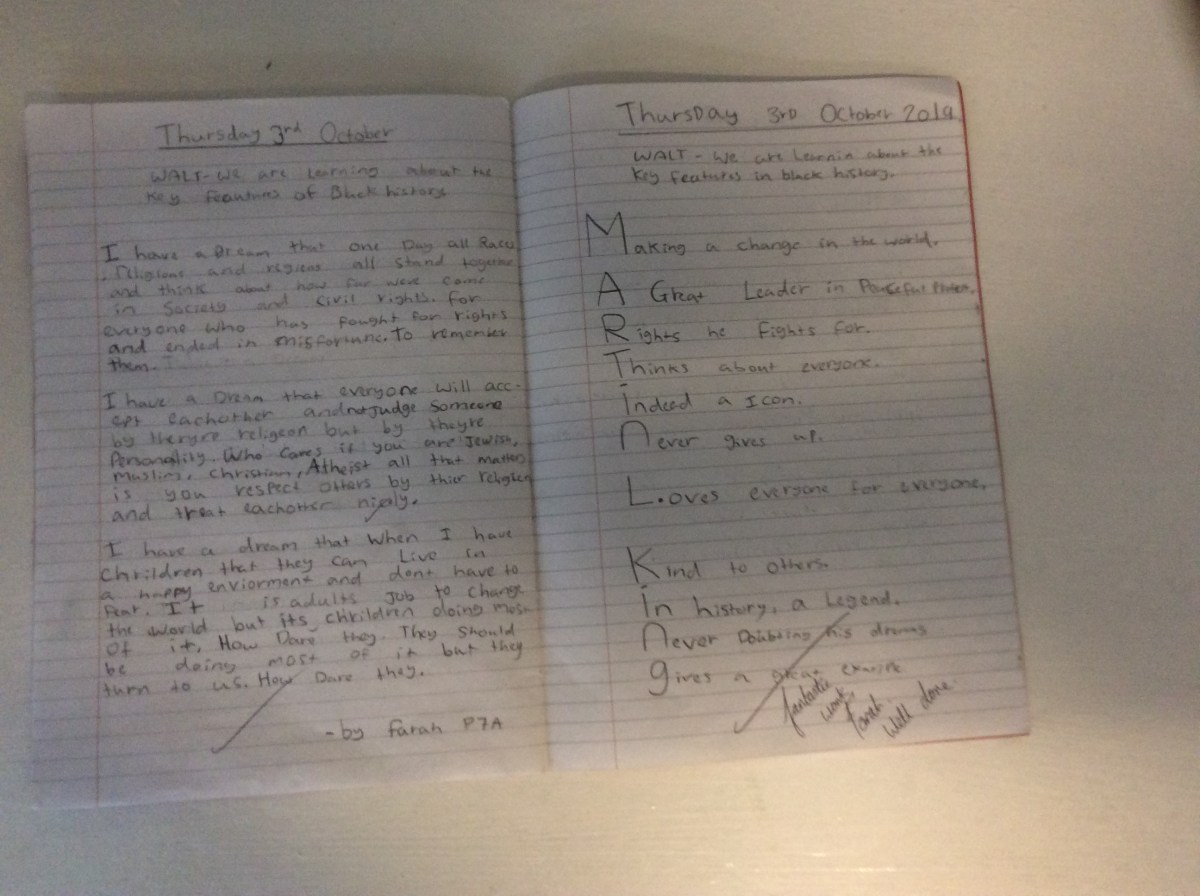 Thursday 3rd October
WALT- we are learning about the
key feautures of Black history
I have a Dream that one Day all Races
religions and regiens all stand together
and think about how far weve come
in Society and Civil rights. for
everyone who has fought for rights
and ended in misfortune. To remember
them.
I have a Dream that everyone will acc-
ept eachother and not judge Someone
by theryre religeon but by theyre
Personality. Who Cares if you are Jewish,
Muslim, Christian, Atheist all that matters
is you respect others by thier religien
and treat eachotter nicely.
I have a dream that when I have
Chrildren that they can Live in
a happy enviorment and dont have to
fear. It is adults Job to change
the world but its chrildren doing most
of it. How Dare they. They Should
be doing most of it but they
turn to us. How Dare they.
-by farah P7A
ThursDay 3RD October 2019
WALT - We are Learnin about the
Key features in black history.
Making a change in the world.
A Great Leader in Peaceful Protest.
Rights he fights for.
Thinks about everyone.
indeed a Icon.
never gives up.
L.oves everyone for everyone.
Kind to others.
in history, a Legend.
never Doubting his dreams
gives a great example
fantastic
work
Farah.
Well done.